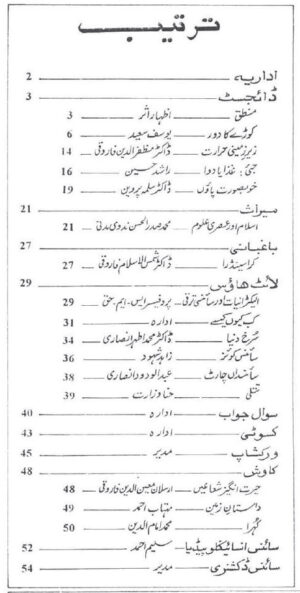 ترتیب
اداریہ 2
ڈائجسٹ 3
منطق اظہار اثر 3
کوڑے کا دور یوسف سعید 6
زیرِ زمینی حرارت ڈاکٹر مظفر الدین فاروقی 14
جئی: غذا یا دوا راشد حسین 16
خوبصورت پاؤں ڈاکٹر سلمہ پروین 19
میراث 21
اسلام اور عصری علوم محمد صدر الحسن ندوی مدنی 21
باغبانی 27
کراسینڈرا ڈاکٹر شمس الاسلام فاروقی 27
لائٹ ہاؤس 29
الیکٹرانیات اور سائنسی ترقی پروفیسر ایس۔ ایم۔ حق 29
کب کیوں کیسے ادارہ 31
سُرخ دنیا ڈاکٹر محمد اظہر انصاری 34
سائنس کوئز زاہد شہود 36
سائنسداں چارٹ عبدالودود انصاری 38
تتلی حنا وزارت 39
سوال جواب ادارہ 40
کسوٹی ادارہ 43
ورکشاپ مدیر 45
کاوش 48
حیرت انگیز شعاعیں ارسلان معین الدین فاروقی 48
داستانِ زمین مہتاب احمد 49
کُہرا محمد امام الدین 50
سائنسی انسائیکلوپیڈیا سلیم احمد 52
سائنسی ڈکشنری مدیر 54